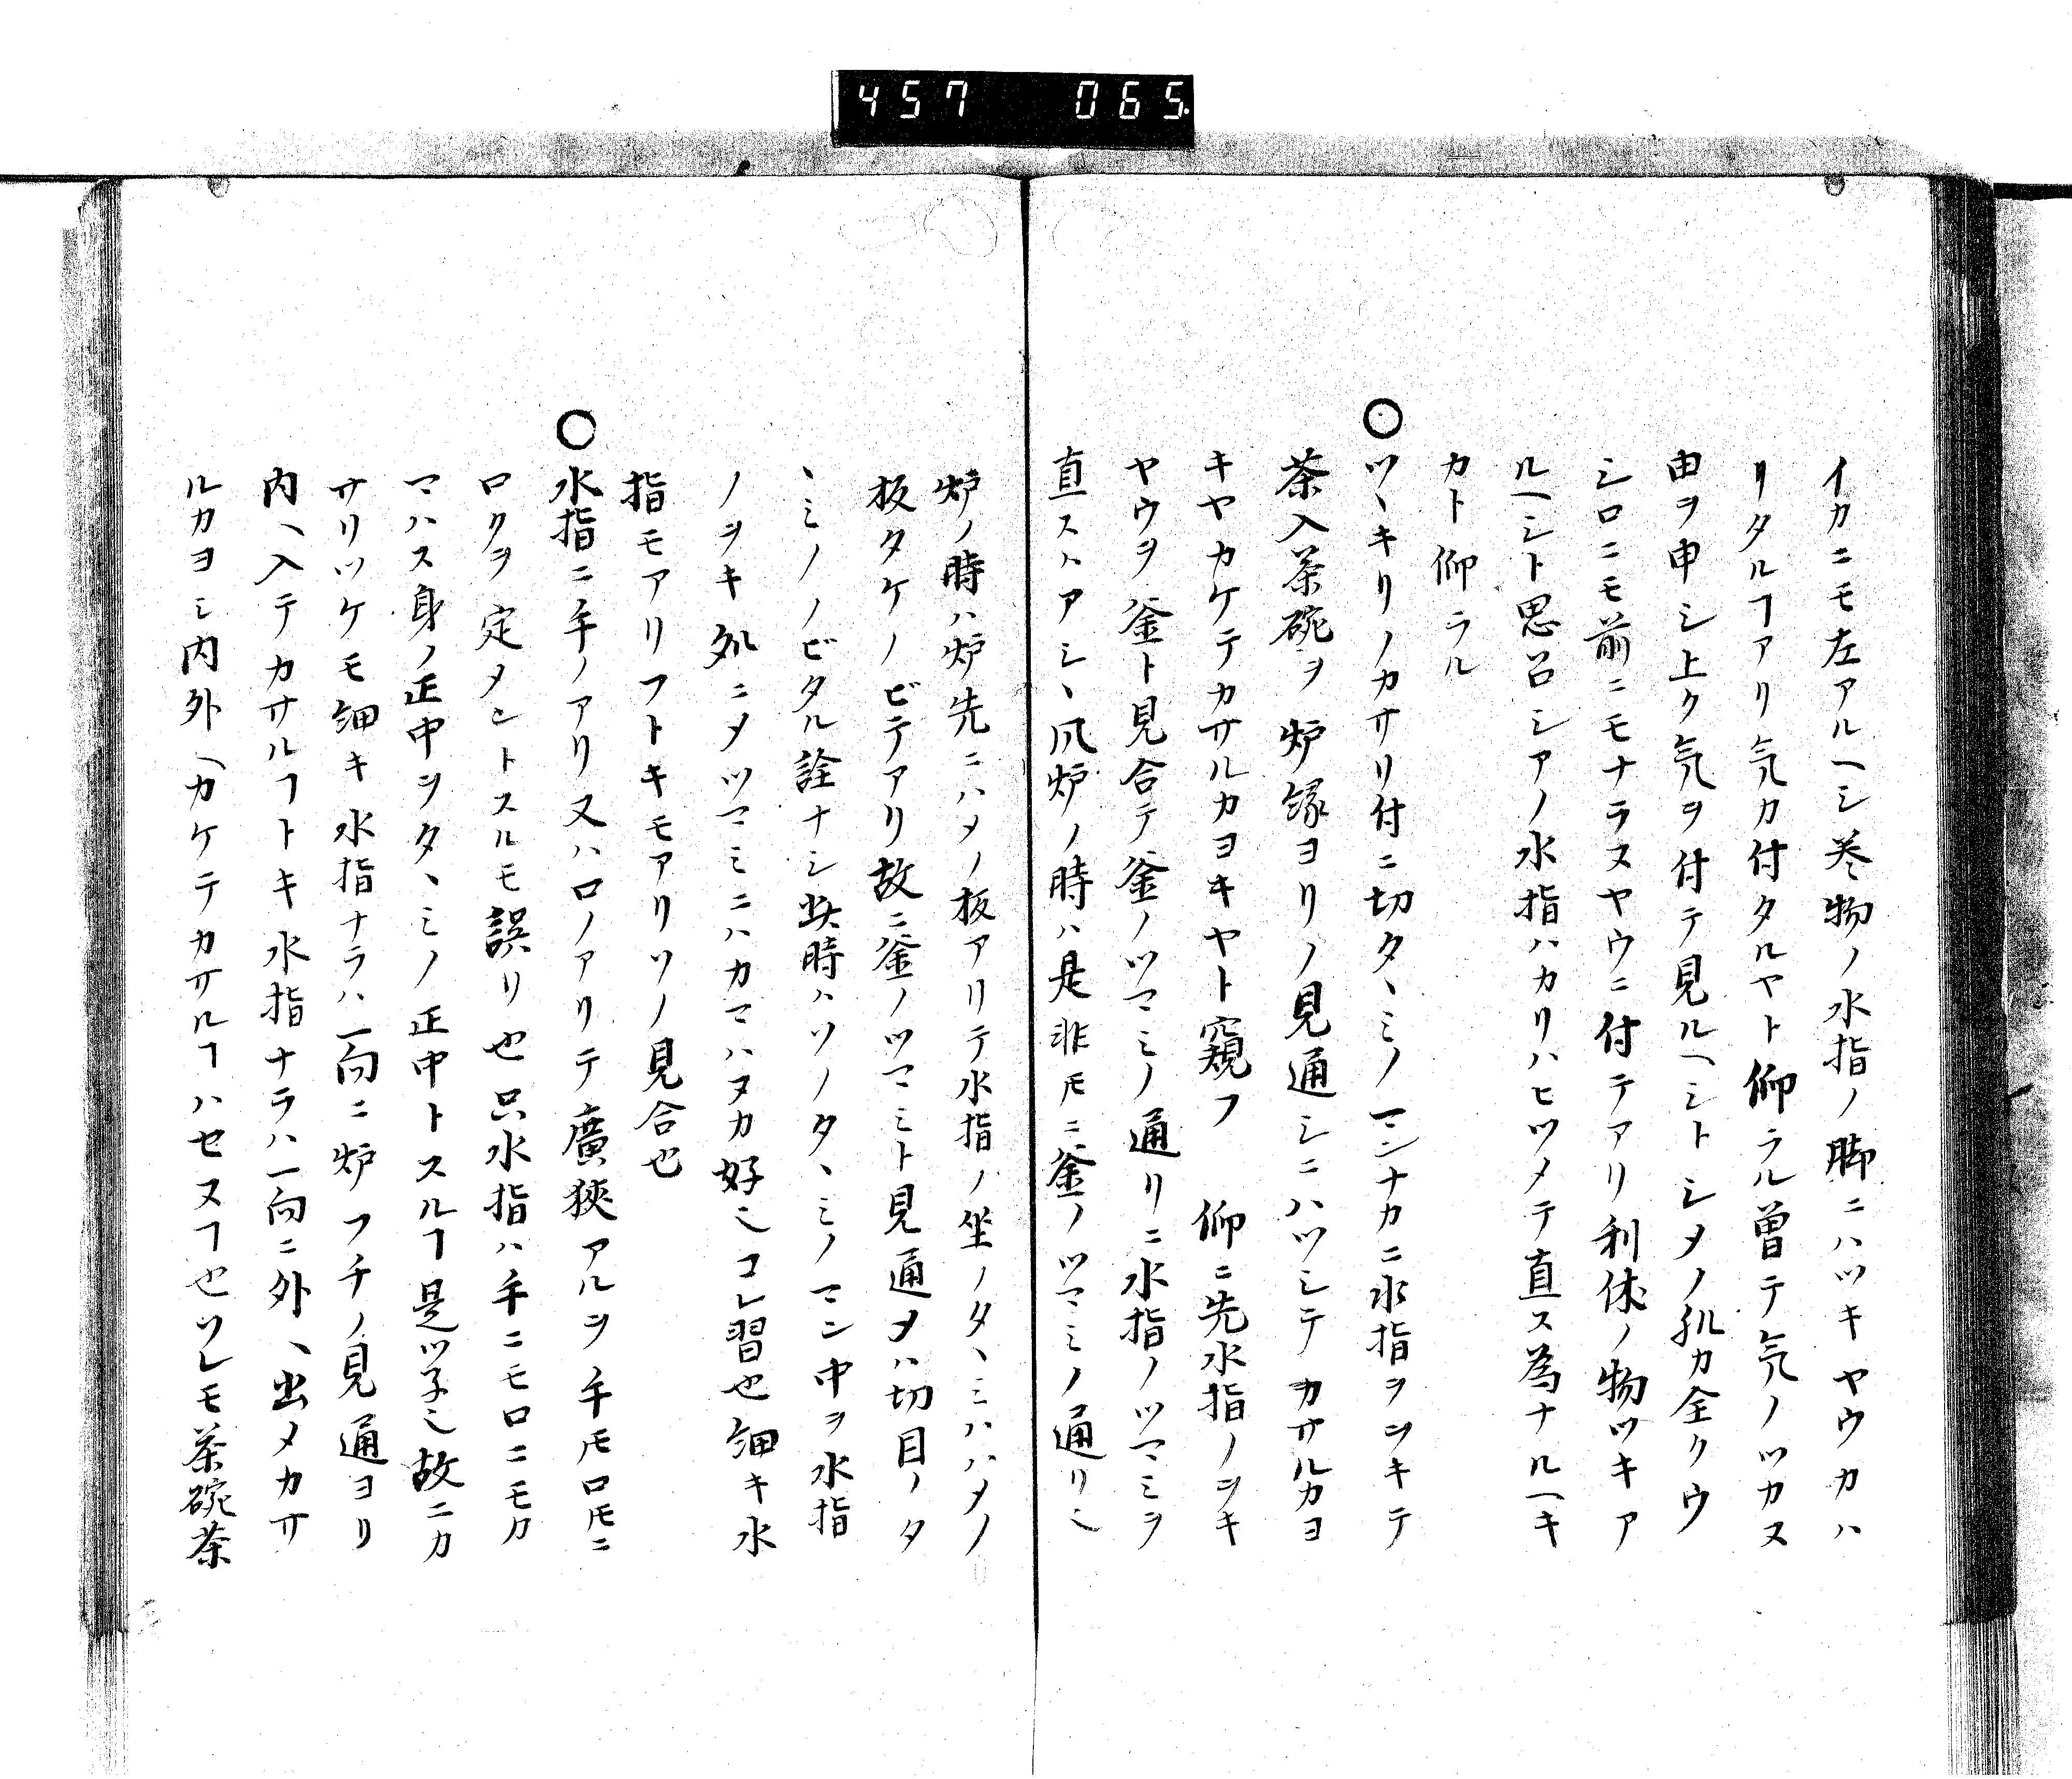 457 065
イカニモ左アルヘシ巻物ノ水指ノ脚ニハツキヤウカハ
リタルヿアリ気カ付タルヤト仰ラル曽テ気ノツカヌ
由ヲ申シ上ク気ヲ付テ見ルヘシトシメノ爪カ全クウ
シロニモ前ニモナラヌヤウニ付テアリ利休ノ物ツキア
ルヘシト思召シアノ水指ハカリハヒツメテ直ス為ナルヘキ
カト仰ラル
〇ツヽキリノカサリ付ニ切タヽミノマンナカニ水指ヲヲキテ
茶入茶碗ヲ炉縁ヨリノ見通シニハツシテカサルカヨ
キヤカケテカサルカヨキヤト窺フ 仰ニ先水指ノヲキ
ヤウヲ釜ト見合テ釜ノツマミノ通リニ水指ノツマミヲ
直スハアシヽ風炉ノ時ハ是非𪜈ニ釜ノツマミノ通リ也
炉ノ時ハ炉先ニハメノ板アリテ水指ノ坐ノタヽミハハメノ
板タケノビテアリ故ニ釜ノツマミト見通メハ切目ノタ
ヽミノノビタル詮ナシ此時ハソノタヽミノマン中ヲ水指
ノヲキ処ニメツマミニハカマハヌカ好シコレ習也細キ水
指モアリフトキモアリソノ見合也
〇水指ニ手ノアリ又ハ口ノアリテ廣狹アルヲ手𪜈口𪜈ニ
ロクヲ定メントスルモ誤リ也只水指ハ手ニモ口ニモカ
マハス身ノ正中ヲタヽミノ正中トスルヿ是ツ子也故ニカ
サリツケモ細キ水指ナラハ一向ニ炉フチノ見通ヨリ
内ヘ入テカサルフトキ水指ナラハ一向ニ外ヘ出メカサ
ルカヨシ内外ヘカケテカサルヿハセヌヿ也ソレモ茶碗茶